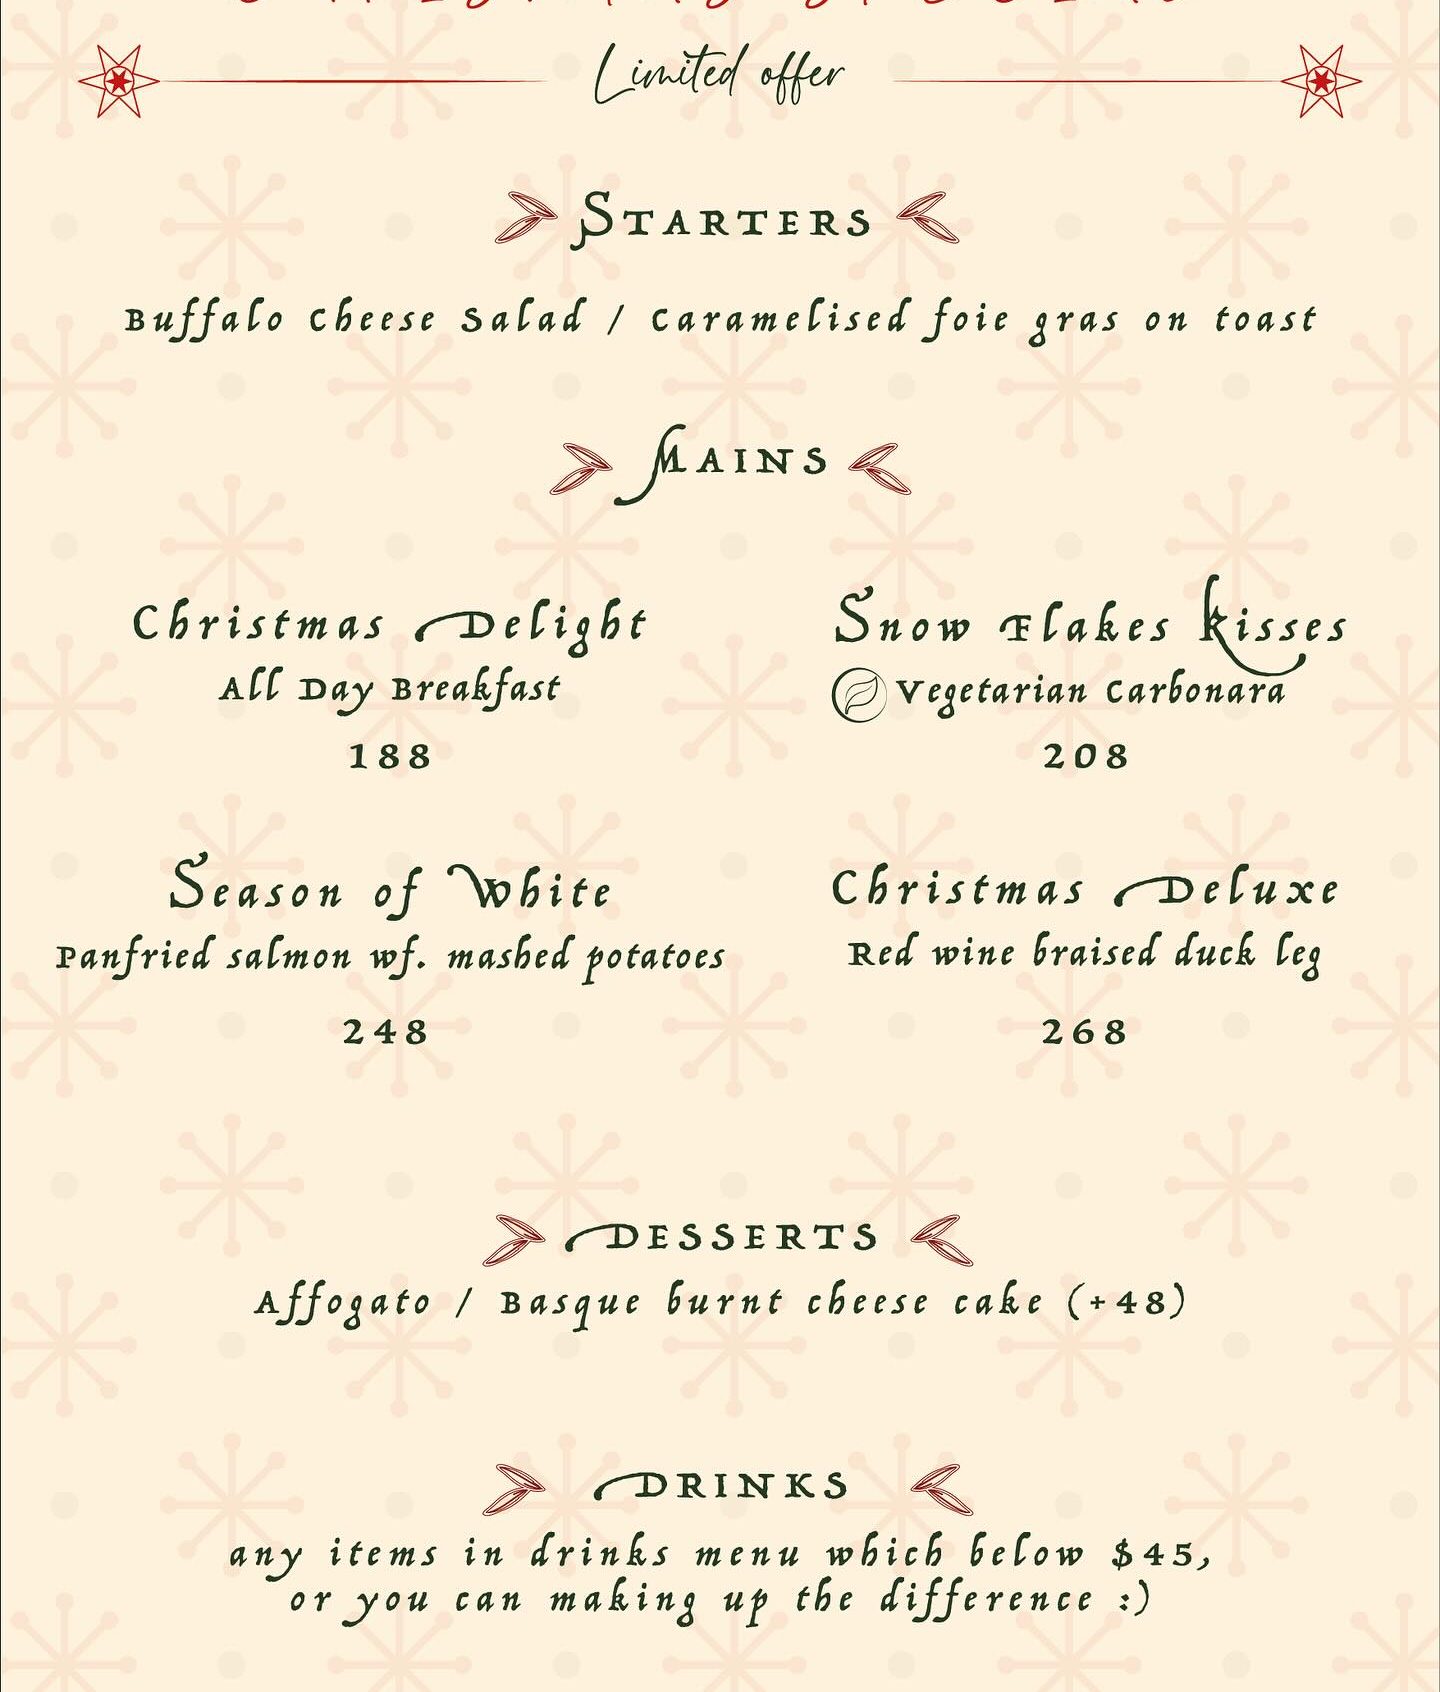 Limited offer
STARTERS
Buffalo Cheese Salad / Caramelised foie gras on toast
MAINS
Christmas Delight
All Day Breakfast
188
Snow Flakes kisses
Vegetarian Carbonara
208
Season of White
Panfried salmon wf. mashed potatoes
248
Christmas Deluxe
Red wine braised duck leg
268
DESSERTS
Affogato / Basque burnt cheese cake (+48)
DRINKS
any items in drinks menu which below $45,
or you can making up the difference :)